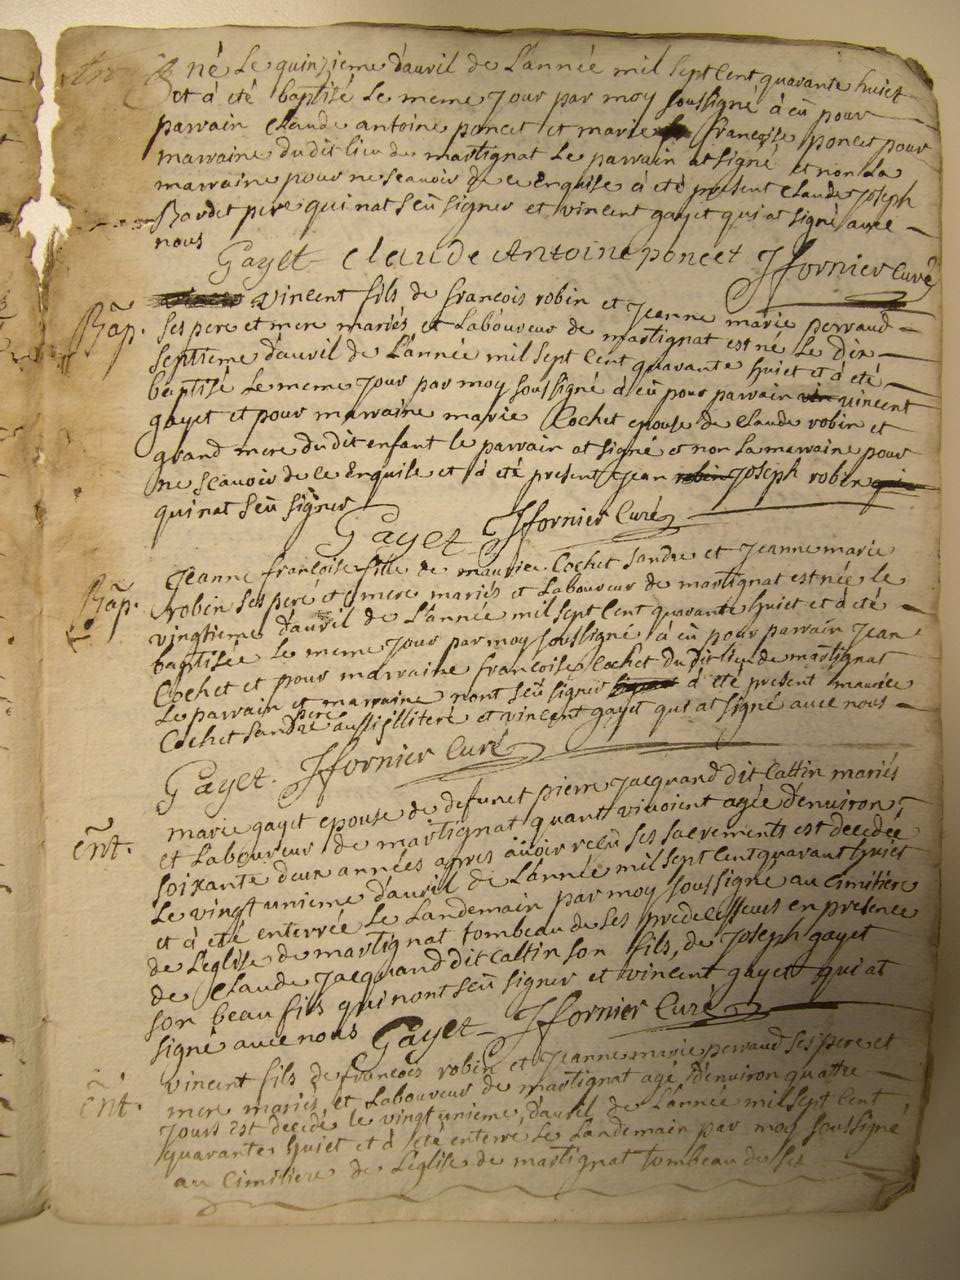 né Le quinzieme d'auril de L'année mil sept Cent quarante huiet
et à été baptisé Le meme Jour par moy soussigné à eü pour
parrain Claude antoine poncet et marie francoise poncet pour
marraine dudit lieu de martignat Le parrain at signé et non La
marraine pour ne scauoir de ce Enquise à été present Claude Joseph
Bardet pere qui nat sceü signer et vincent gayet qui at signé auec
nous
Gayet Claude Antoine poncet Jfornier Curé
Bãp. vincent fils de francois robin et Jeanne marie perraud
ses pere et mere mariés et Laboureur de martignat est né Le dix
septieme d'auril de L'année mil sept Cent quarante huiet et à été
baptisé Le meme Jour par moy soussigné à eü pour parrain vin vincent
gayet et pour marraine marie Cochet epouse de Claude robin et
grand mere dudit enfant le parrain at signé et non La marraine pour
ne scauoir de ce Enquise et à été present Jean robin Joseph robin qui
qui nat sceü signer
Gayet Jfornier Curé
Bãp. Jeanne francoise fille de maurice Cochet Sandre et Jeanne marie
robin ses pere et mere mariés et Laboureur de martignat est née le
vingtieme d'auril de L'année mil sept Cent quarante huiet et à été
baptisée Le meme Jour par moy soussigné à eü pour parrain Jean
Cochet et pour marraine francoise Cochet du dit lieu de martignat
Le parrain et marraine nont sceü signer à été present maurice
pere
Cochet Sandre aussi illiteré et vincent gayet qui at signé auec nous
Gayet. Jfornier Curé
Ent. marie gayet epouse de defunct pierre Jacquand dit Cattin mariés
et Laboureur de martignat quant viuoient agée d'enuiron
soixante deux années apres auoir recu ses sacrements est decedée
Le vingt unieme d'auril de L'année mil sept Cent quarant huiet
et à été enterrée Le Landemain par moy soussigné au Cimitiere
de L'eglise de martignat tombeau de ses predecesseurs en presence
de Claude Jacquand dit Cattin son fils, de Joseph gayet
son beau fils qui nont sceü signer et vincent gayet qui at
signé auec nous Gayet Jfornier Curé
Ent. vincent fils de francois robin et Jeanne marie perraud ses pere et
mere mariés et Laboureur de martignat agé d'enuiron quattre
Jours est decedé le vingt unieme d'auril de L'année mil sept Cent
quarante huiet et à été enterré Le Landemain par moy soussigné
au Cimitiere de L'eglise de martignat tombeau de ses